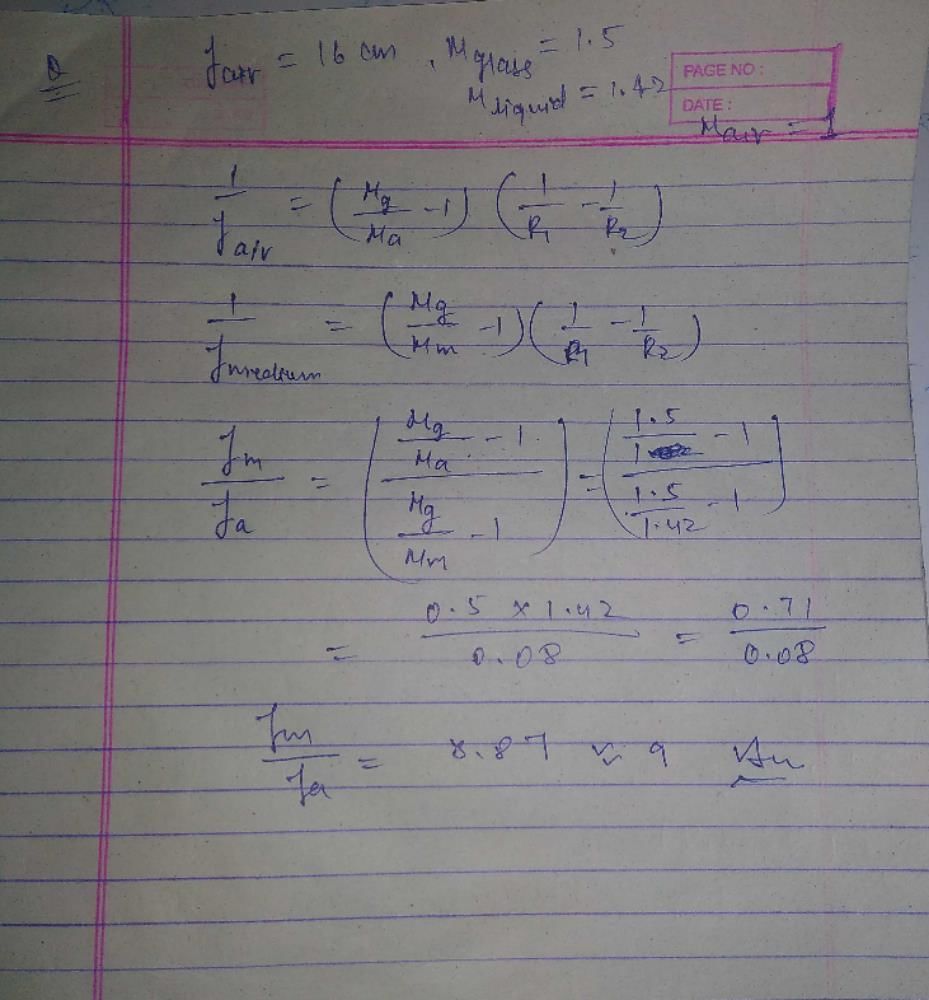 Q
f_air = 16 cm, μ_glass = 1.5
μ_liquid = 1.42
PAGE NO :
DATE :
μ_air = 1
1/f_air = (μg/μa - 1) (1/R1 - 1/R2)
1/f_medium = (μg/μm - 1) (1/R1 - 1/R2)
fm/fa = ((μg/μa - 1)/(μg/μm - 1)) = ((1.5/1 - 1)/(1.5/1.42 - 1))
= (0.5 × 1.42)/0.08 = 0.71/0.08
fm/fa = 8.87 ≈ 9 Ans